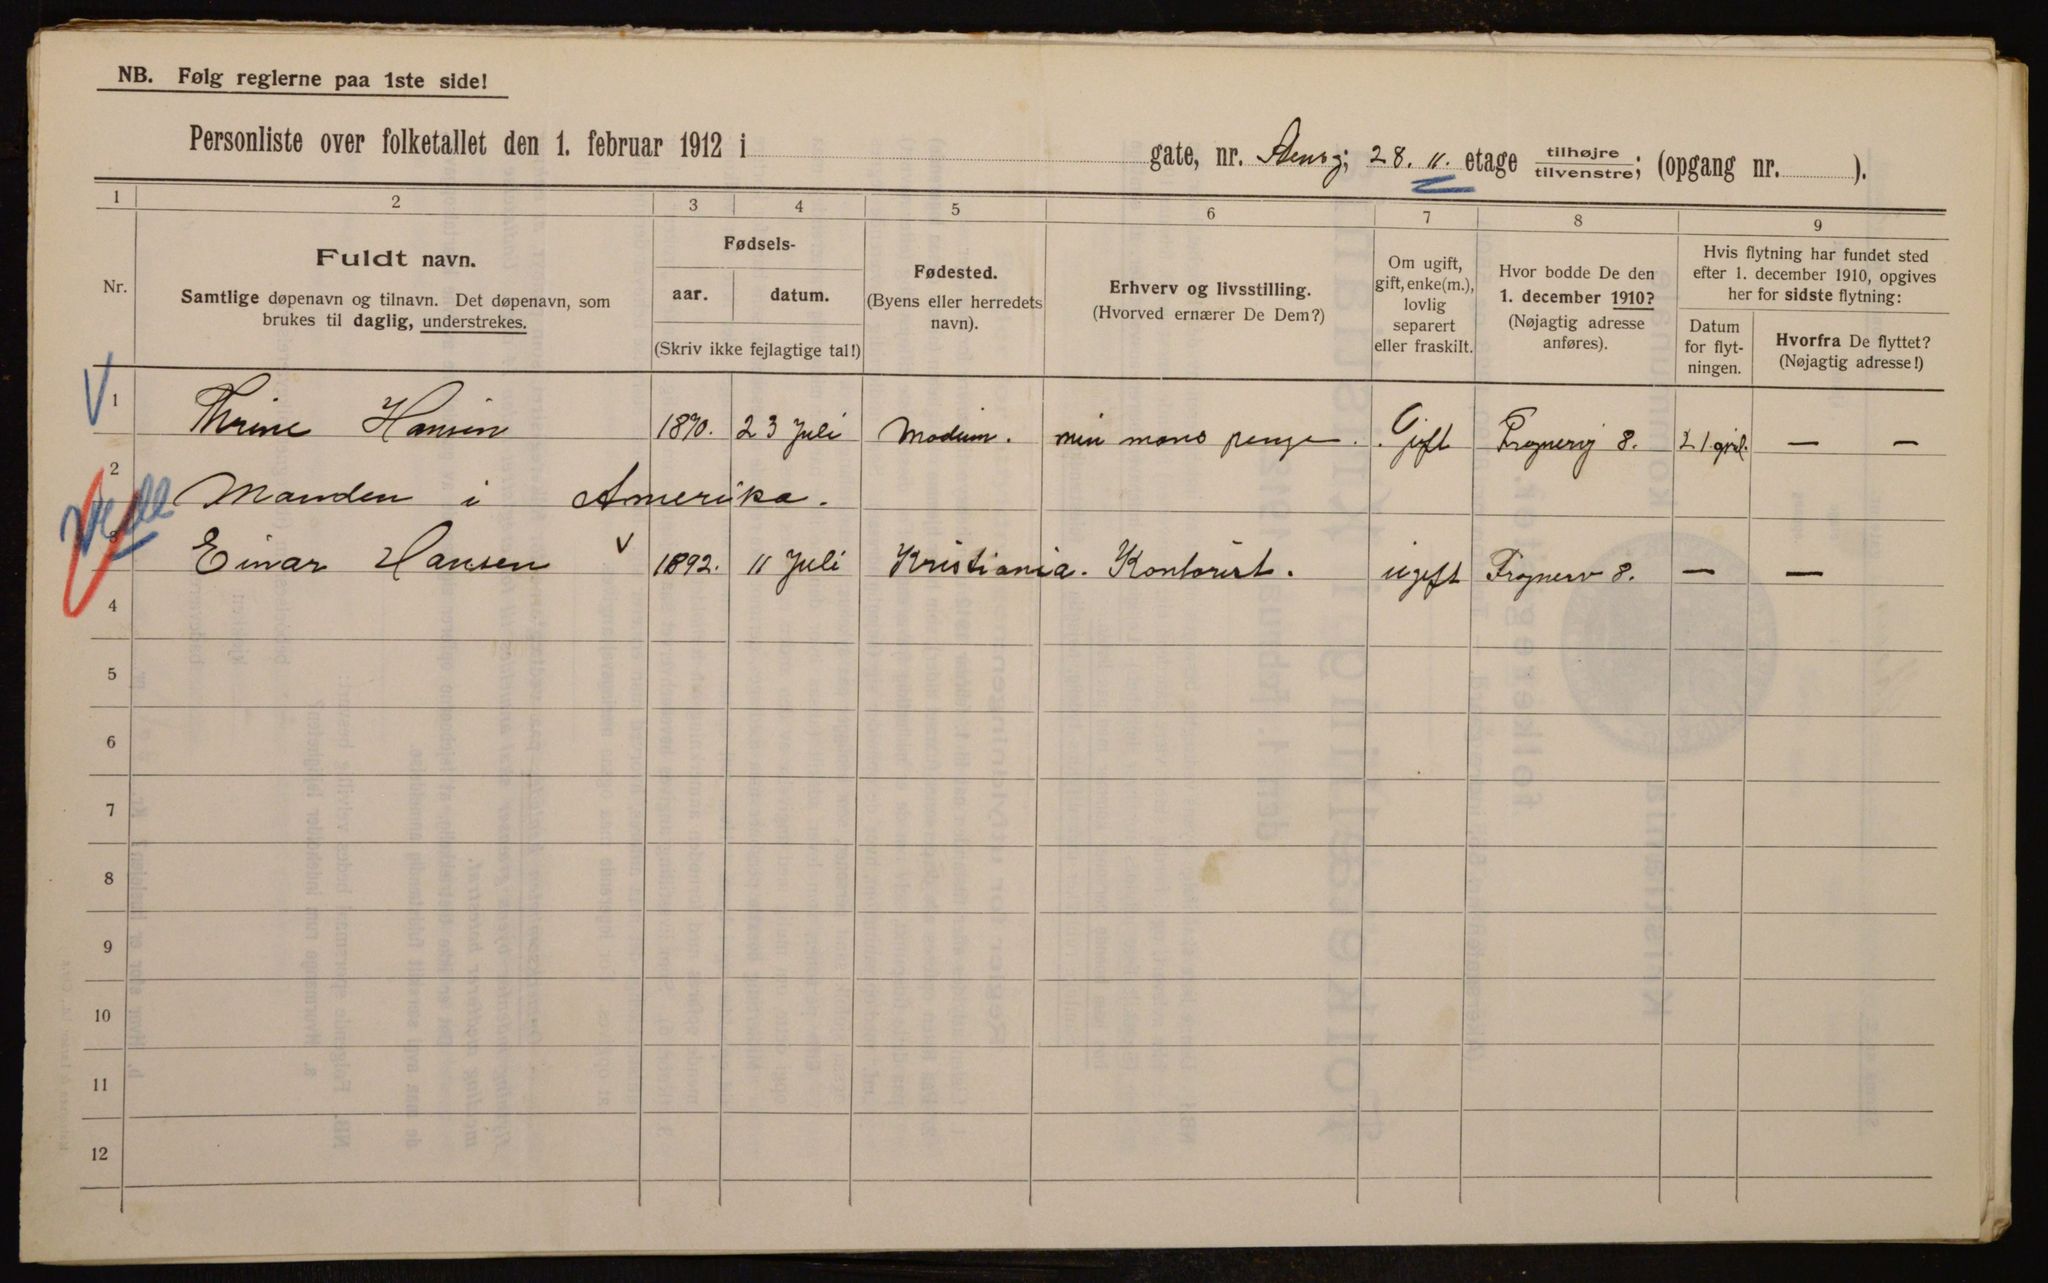 NB. Følg reglerne paa 1ste side!
Personliste over folketallet den 1. februar 1912 i gate, nr. 28. II. etage tilhøjre tilvenstre; (opgang nr. ).
1 2 3 4 5 6 7 8 9
Nr.
Fuldt navn.
Samtlige døpenavn og tilnavn. Det døpenavn, som
brukes til daglig, understrekes.
Fødsels-
aar. datum.
(Skriv ikke fejlagtige tal!)
Fødested.
(Byens eller herredets
navn).
Erhverv og livsstilling.
(Hvorved ernærer De Dem?)
Om ugift,
gift, enke(m.),
lovlig
separert
eller fraskilt.
Hvor bodde De den
1. december 1910?
(Nøjagtig adresse
anføres).
Hvis flytning har fundet sted
efter 1. december 1910, opgives
her for sidste flytning:
Datum
for flyt-
ningen.
Hvorfra De flyttet?
(Nøjagtig adresse!)
1 Thrine Hansen 1870. 23 Juli Modum. min mans penge. Gift Frognerv 8. — —
2 Manden i Amerika.
3 Einar Hansen V 1892. 11 Juli Kristiania. Kontorist. ugift Frognerv 8. — —
4
5
6
7
8
9
10
11
12